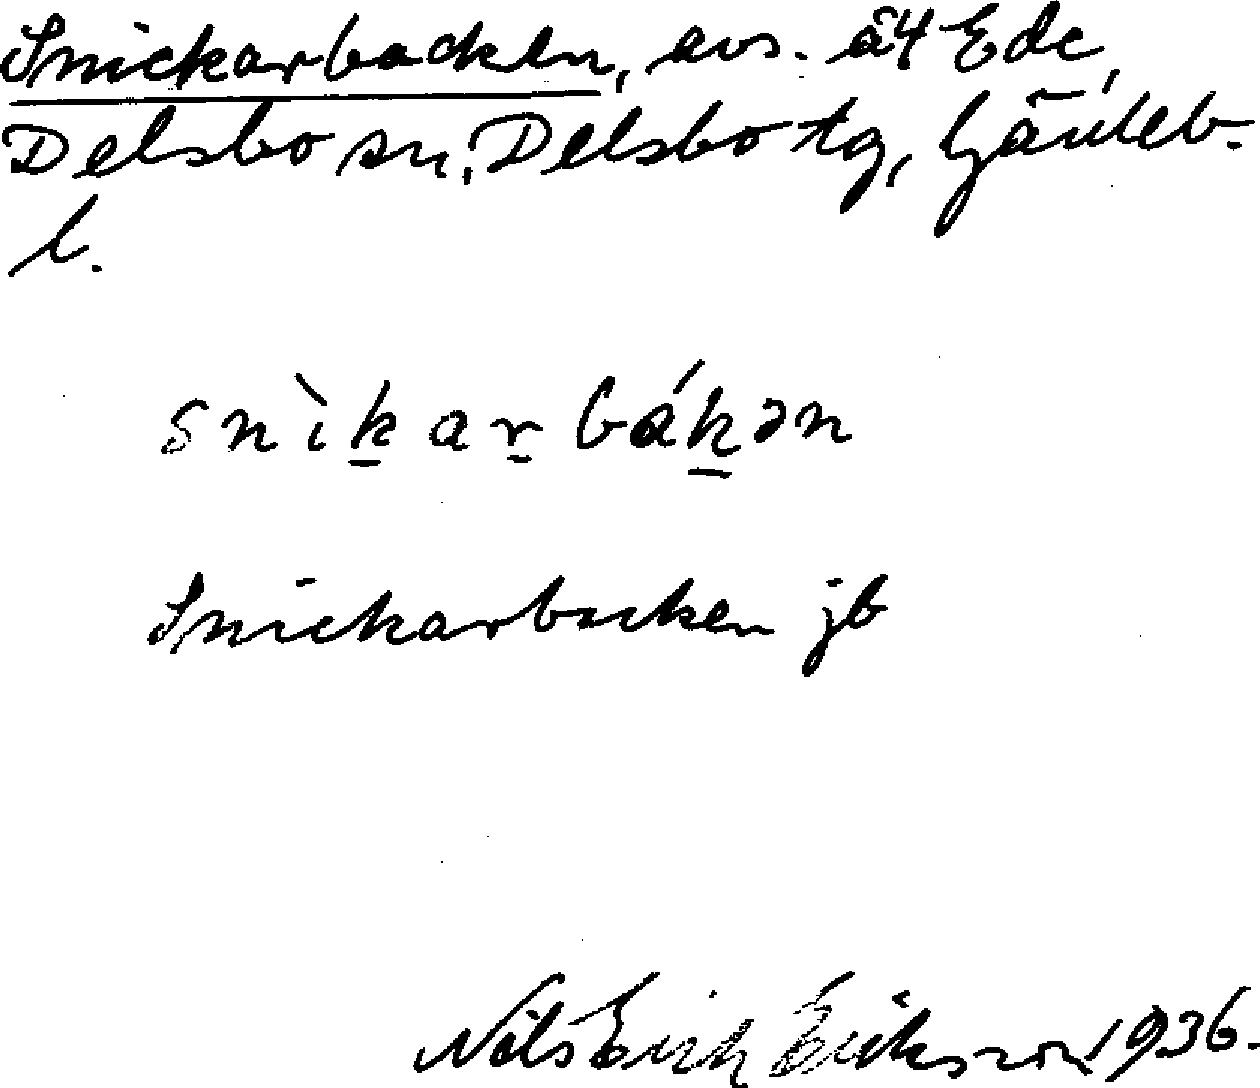 Snickarbacken, avs. å 4 Ede,
Delsbo sn, Delsbo tg, Gävleb.
l.
snìk̲ar̲bák̲ən
Snickarbacken jb
Nils Erik Eriksson 1936.